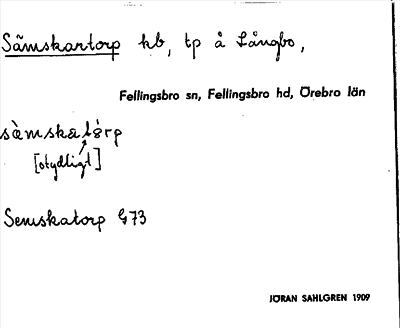 Sämskartorp hb, tp å Långbo,
Fellingsbro sn, Fellingsbro hd, Örebro län
sämskatårp
[otydligt]
Semskatorp G73
JÖRAN SAHLGREN 1909